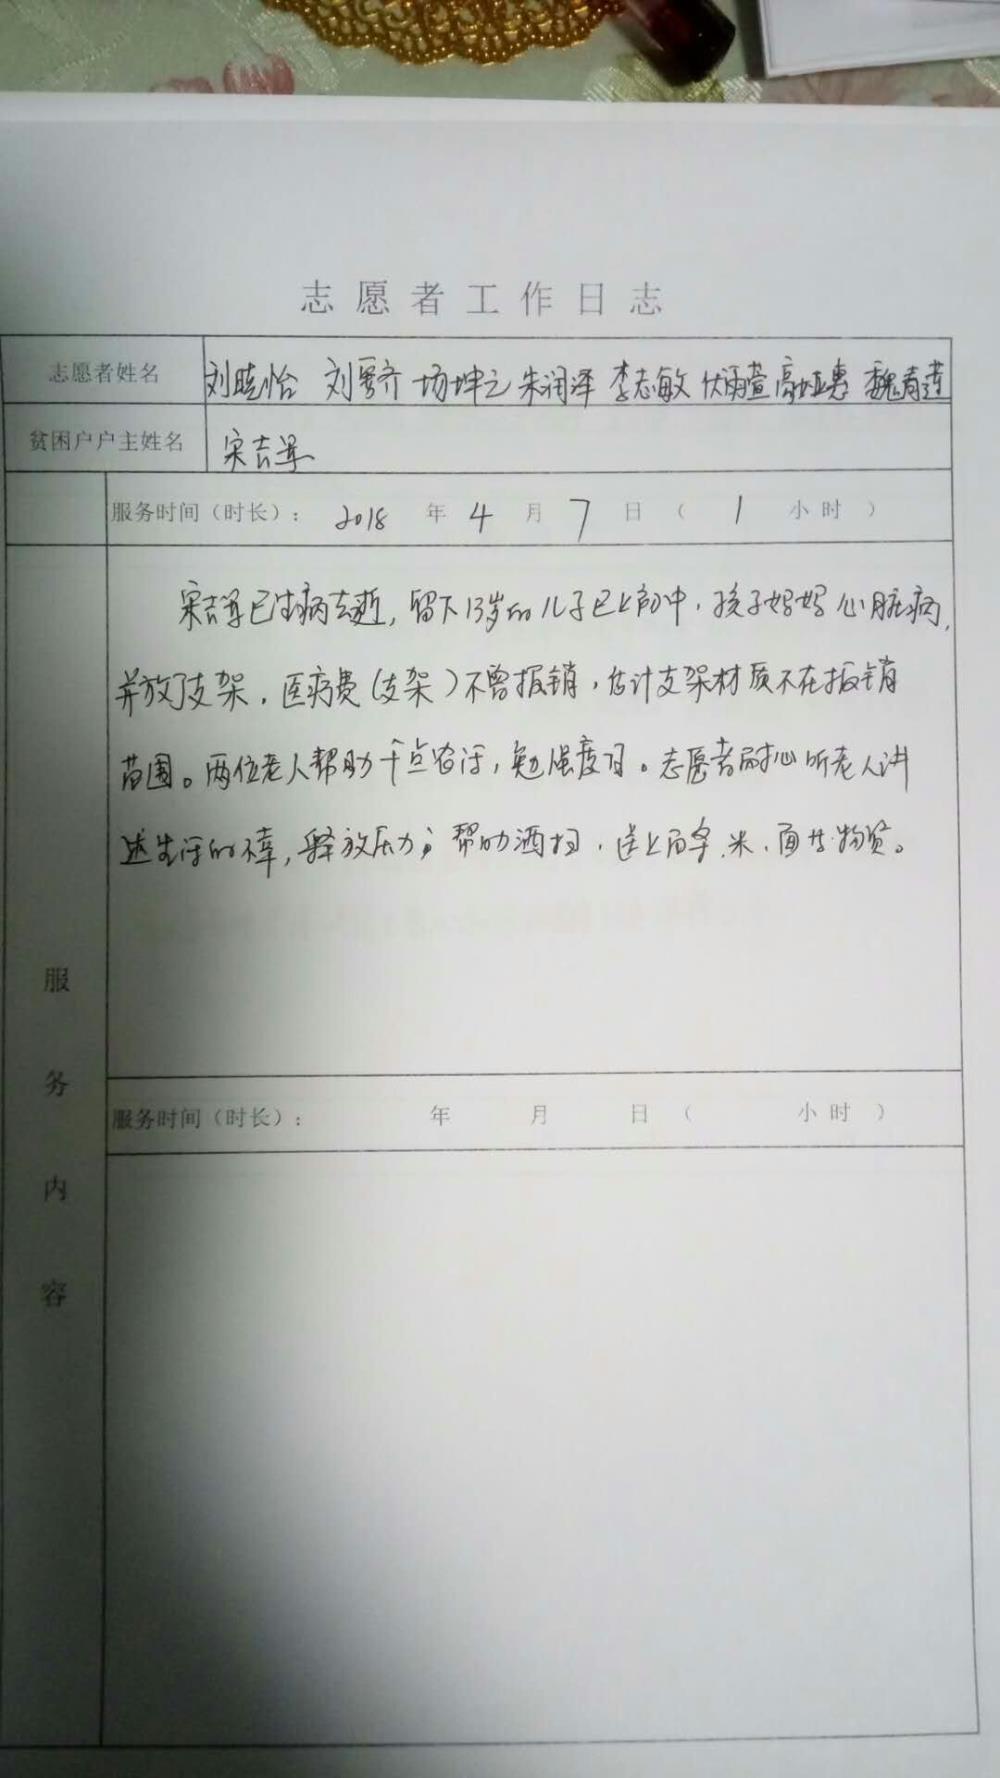 志愿者工作日志
志愿者姓名 刘晓怡 刘 齐 杨坤之 朱润泽 李志敏 伏雨萱 高娅惠 魏青莲
贫困户户主姓名 宋吉
服务时间（时长）： 2018 年 4 月 7 日（ 1 小时）
宋吉 已生病去逝，留下13岁的儿子已上初中，孩子妈妈心脏病，
并放了支架，医疗费(支架)不曾报销，估计支架材质不在报销
范围。两位老人帮助干点农活，勉强度日。志愿者耐心听老人讲
述生活的不幸，释放压力；帮助洒扫，送上 米、面等物资。
服务内容
服务时间（时长）： 年 月 日（ 小时）